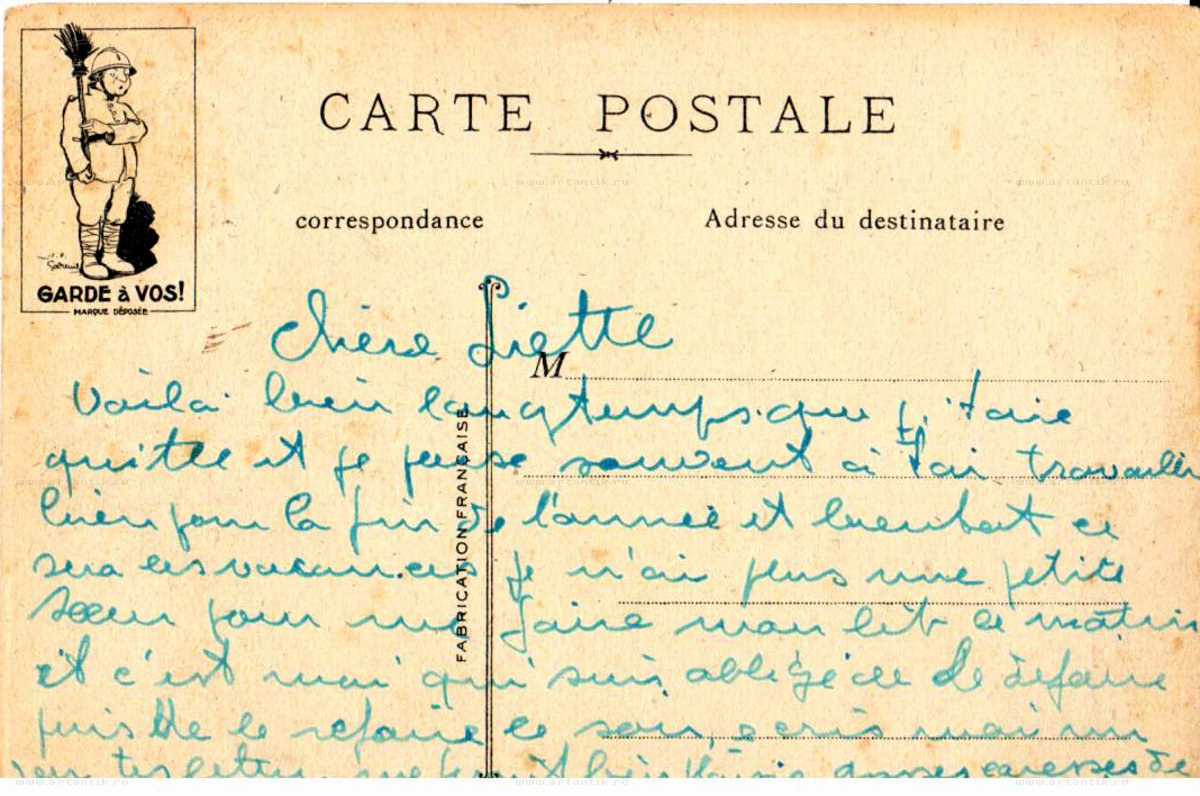 CARTE POSTALE
correspondance
Adresse du destinataire
GARDE à VOS!
MARQUE DÉPOSÉE
FABRICATION FRANÇAISE
M
Chère Liette
Voila bien longtemps que j. t'aie
quitte et je pense souvent a toi travailler
bien pour la fin de l'année et bientot ce
sera les vacances je n'ai plus une petite
Sœur pour me faire mon lit ce matin
et c'est moi qui suis obligé de le defaire
puis de le refaire le soir, ecris moi un
caresses de
www.artantik.ru